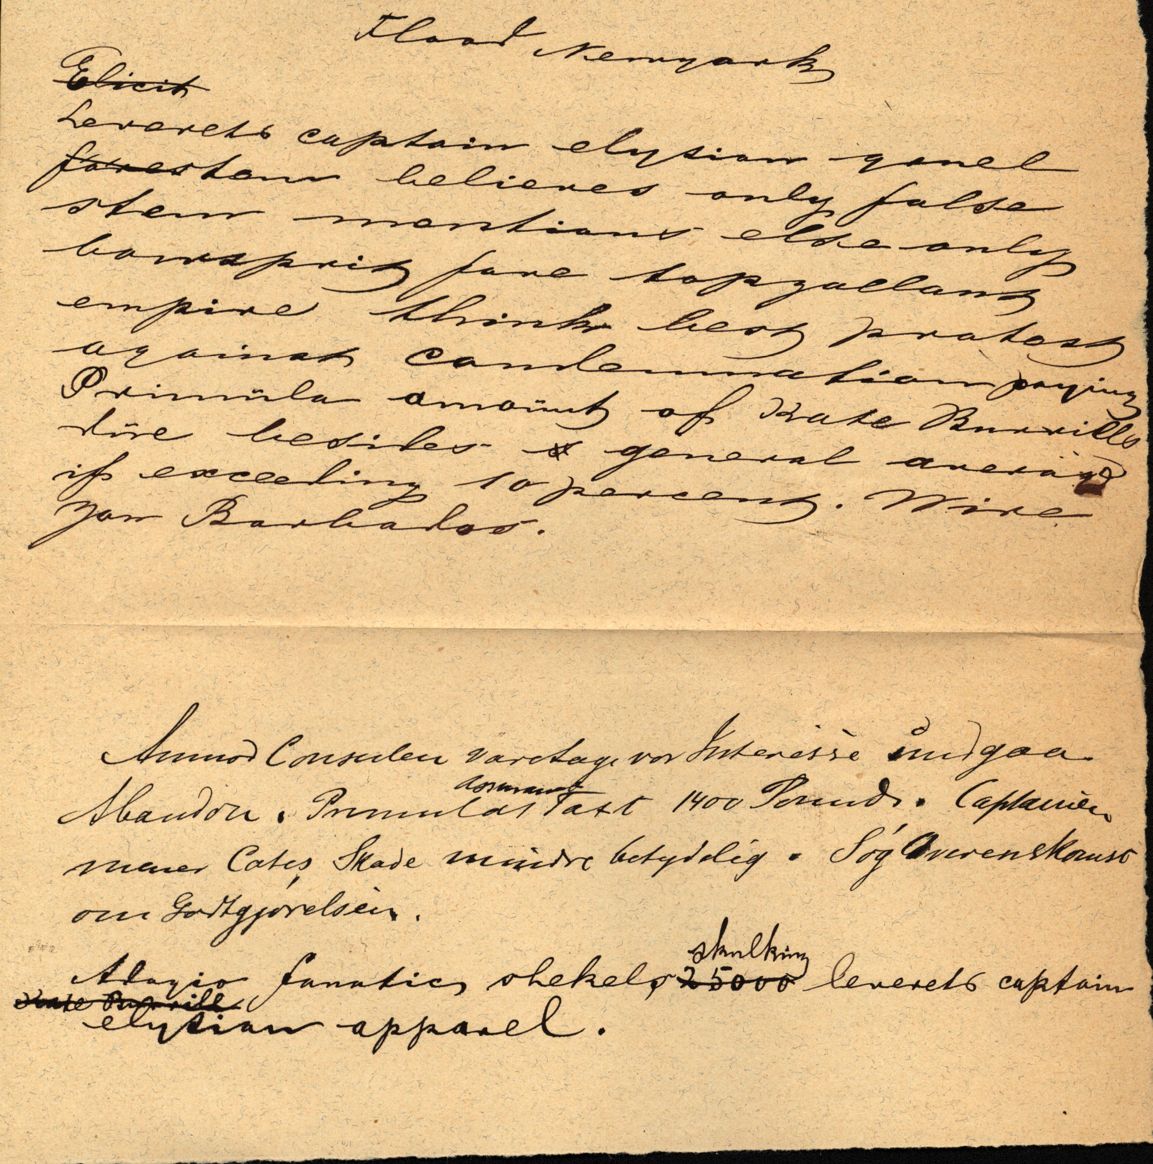 Flood Newyork
Elicit
Leverets captain elysian gonel
forestem believes only false
stem mentions else only
bowsprit fore topgallant
empire think best protest
against condemnation paying
Primula amount of Kate Burrills
due besides general average
if exceeding 10 percent. Wire
you Barbados.
Anmod Consulen varetage vor Interesse undgaa
Abandon. Primulas Taxt 1400 Pounds. Captainen
mener Cates Skade mindre betydelig. Søg Overenskomst
om Godtgjørelsen.
skulking
Adagio fanatic shekels 25000 leverets captain
Kate Burrill
elysian apparel.